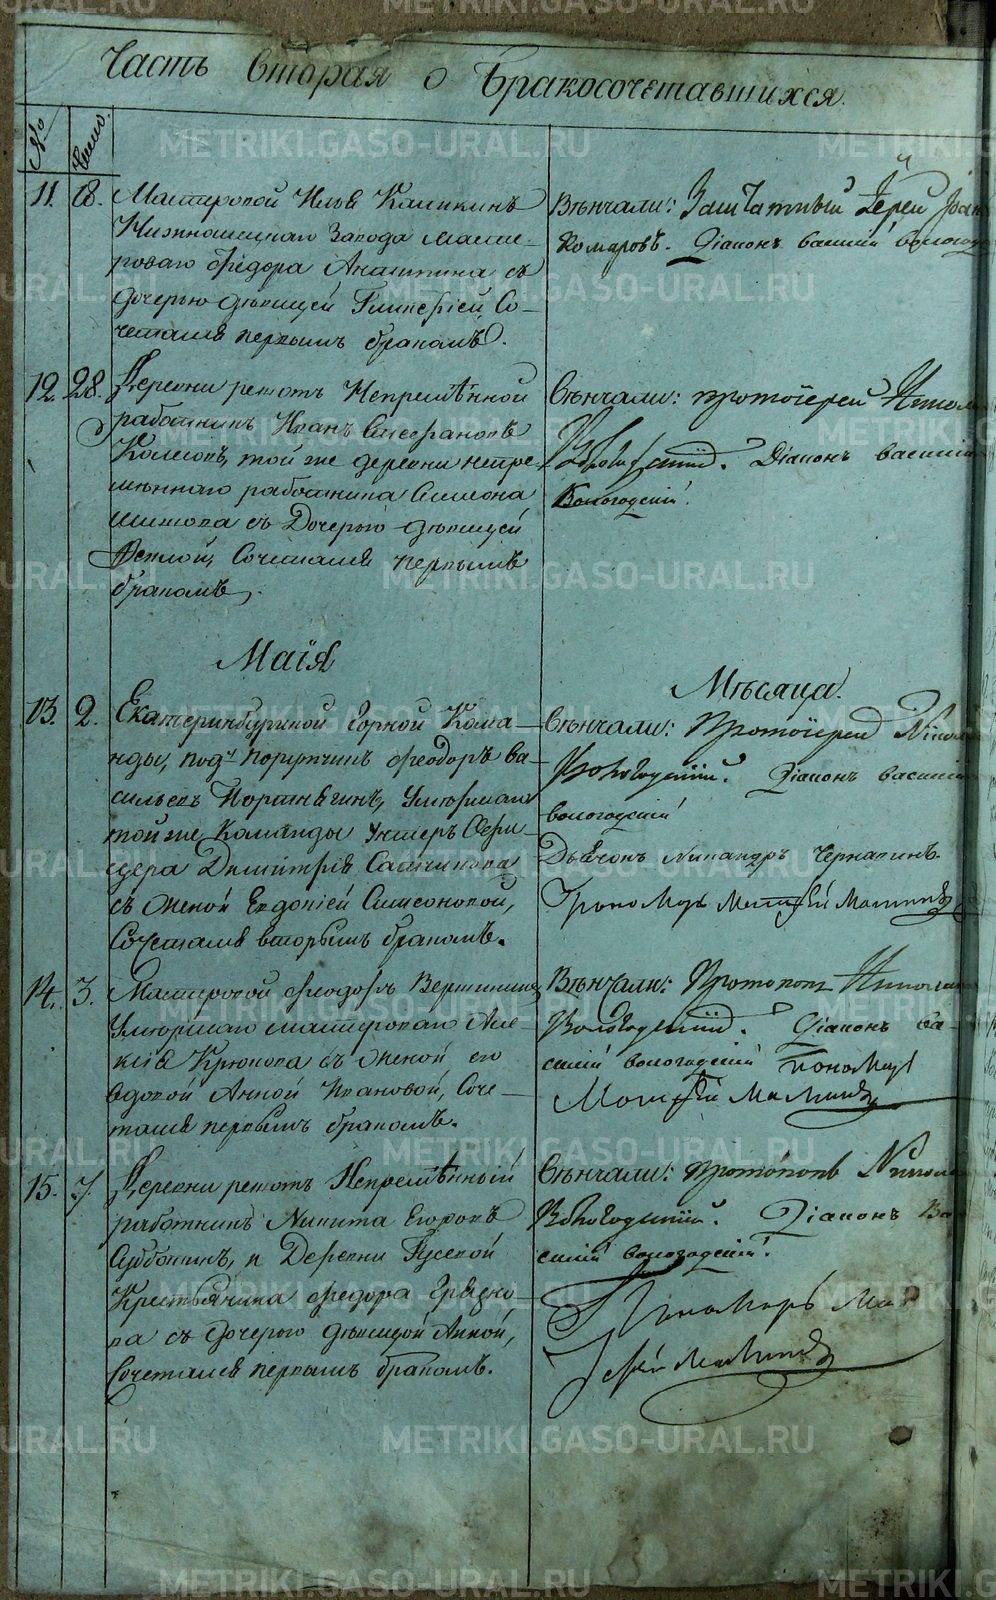 Часть вторая о Бракосочетавшихся.
№
Число.
11. 18. Мастеровой Илья Каликинъ
Завода масте-
роваго Федора Аникина съ
дочерью девицей Гликеріей, Со-
четался первымъ бракомъ.
Вѣнчали: Заштатный Іерей
Комаровъ. Діаконъ василій вологод
12. 28. Деревни решотъ Непремѣнной
работникъ Иванъ
той же деревни непре-
мѣннаго работника Симиона
съ Дочерью девицей
Феклой, Сочетался первымъ
бракомъ.
Вѣнчали: протоіерей Никол
Вологодскій. Діаконъ василій
Вологодскій.
Маія
Мѣсяца.
13. 2. Екатеринбургской Горной Кома-
нды, подъ порутчикъ феодоръ ва-
сильевъ Портнягинъ, Умершаго
той же Команды Унтеръ Офи-
цера Димитрія
съ женой Евдокіей Симеоновой,
Сочетался вторымъ бракомъ.
Вѣнчали: Протоіерей Никол
Вологодскій. Діаконъ василій
вологодскій
Дьячокъ Никандръ
Пономарь
14. 3. Мастеровой феодоръ Вершининъ,
Умершаго мастероваго Але-
ксія Крюкова съ женой его
вдовой Анной Ивановой, Соче-
тался первымъ бракомъ.
Вѣнчали: Протопопъ Никола
Вологодскій. Діаконъ Ва-
силій вологодскій Пономарь
15. 7. Деревни решотъ Непремѣнный
работникъ Никита Егоровъ
Субботинъ, и Деревни
Крестьянина федора Грязно-
ва съ дочерью девицей Анной,
Сочетался первымъ бракомъ.
Вѣнчали: протопопъ Никола
Вологодскій. Діаконъ Ва
силій вологодскій.
Пономарь Мат
METRIKI.GASO-URAL.RU